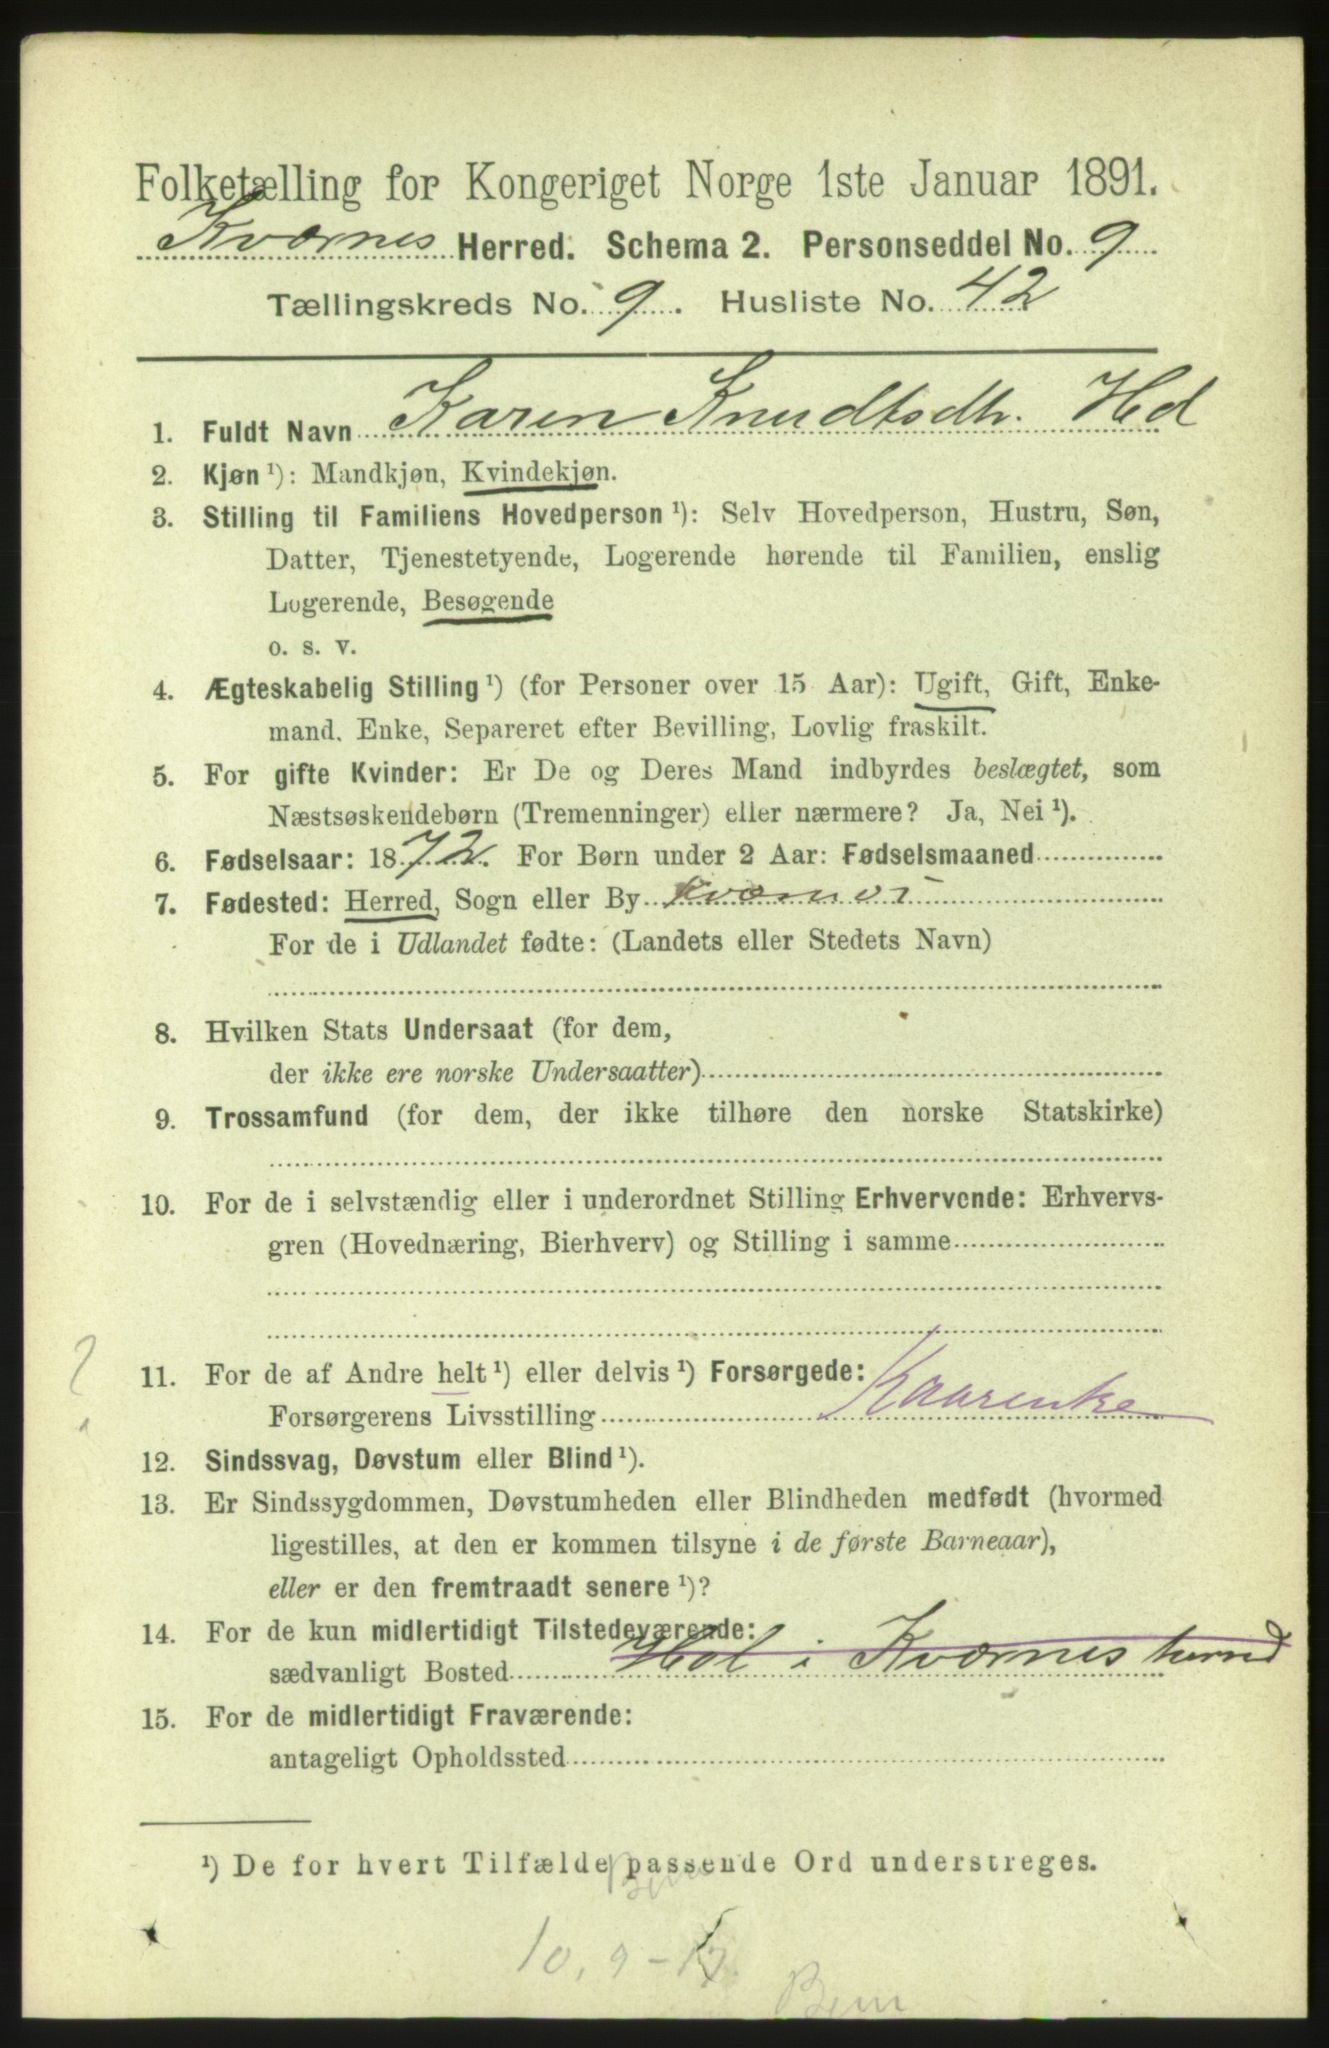 Folketælling for Kongeriget Norge 1ste Januar 1891.
Kværnes Herred. Schema 2. Personseddel No. 9
Tællingskreds No. 9. Husliste No. 42
1. Fuldt Navn Karen Knudtsdtr. Hol
2. Kjøn ¹): Mandkjøn, Kvindekjøn.
3. Stilling til Familiens Hovedperson ¹): Selv Hovedperson, Hustru, Søn,
Datter, Tjenestetyende, Logerende hørende til Familien, enslig
Logerende, Besøgende
o. s. v.
4. Ægteskabelig Stilling ¹) (for Personer over 15 Aar): Ugift, Gift, Enke-
mand. Enke, Separeret efter Bevilling, Lovlig fraskilt.
5. For gifte Kvinder: Er De og Deres Mand indbyrdes beslægtet, som
Næstsøskendebørn (Tremenninger) eller nærmere? Ja, Nei ¹).
6. Fødselsaar: 1872. For Børn under 2 Aar: Fødselsmaaned
7. Fødested: Herred, Sogn eller By Kværnes
For de i Udlandet fødte: (Landets eller Stedets Navn)
8. Hvilken Stats Undersaat (for dem,
der ikke ere norske Undersaatter)
9. Trossamfund (for dem, der ikke tilhøre den norske Statskirke)
10. For de i selvstændig eller i underordnet Stilling Erhvervende: Erhvervs-
gren (Hovednæring, Bierhverv) og Stilling i samme
11. For de af Andre helt ¹) eller delvis ¹) Forsørgede:
Forsørgerens Livsstilling Kaarenke
12. Sindssvag, Døvstum eller Blind ¹).
13. Er Sindssygdommen, Døvstumheden eller Blindheden medfødt (hvormed
ligestilles, at den er kommen tilsyne i de første Barneaar),
eller er den fremtraadt senere ¹)?
14. For de kun midlertidigt Tilstedeværende:
sædvanligt Bosted Hol i Kværnes herred
15. For de midlertidigt Fraværende:
antageligt Opholdssted
¹) De for hvert Tilfælde passende Ord understreges.
10, 9 -